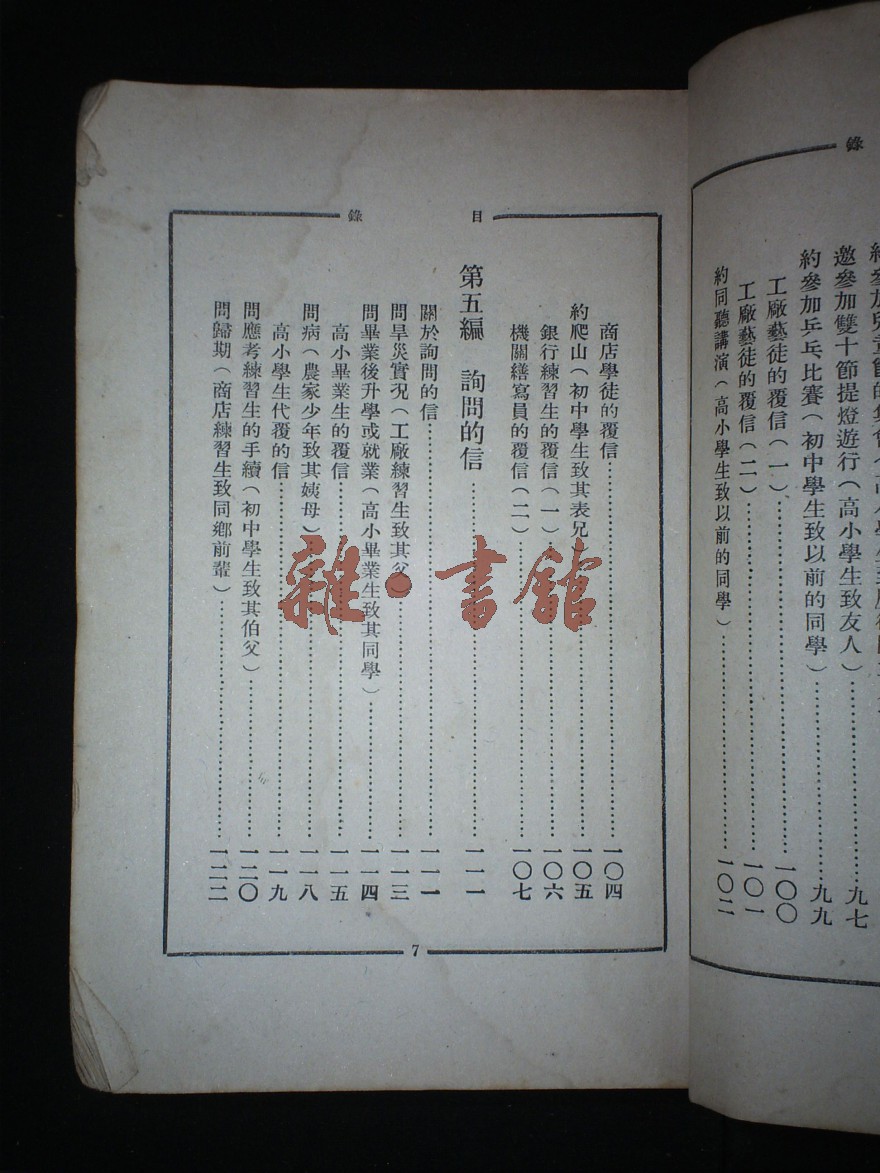 錄
邀參加雙十節提燈遊行（高小學生致友人）……九七
約參加乒乓比賽（初中學生致以前的同學）……九九
工廠藝徒的覆信（一）……一〇〇
工廠藝徒的覆信（二）……一〇一
約同聽講演（高小學生致以前的同學）……一〇二
目錄
商店學徒的覆信……一〇四
約爬山（初中學生致其表兄）……一〇五
銀行練習生的覆信（一）……一〇六
機關繕寫員的覆信（二）……一〇七
第五編　詢問的信……一一一
關於詢問的信……一一一
問旱災實況（工廠練習生致其父）……一一三
問畢業後升學或就業（高小畢業生致其同學）……一一四
高小畢業生的覆信……一一五
問病（農家少年致其姨母）……一一八
高小學生代覆的信……一一九
問應考練習生的手續（初中學生致其伯父）……一二〇
問歸期（商店練習生致同鄉前輩）……一二二
7
雜·書館